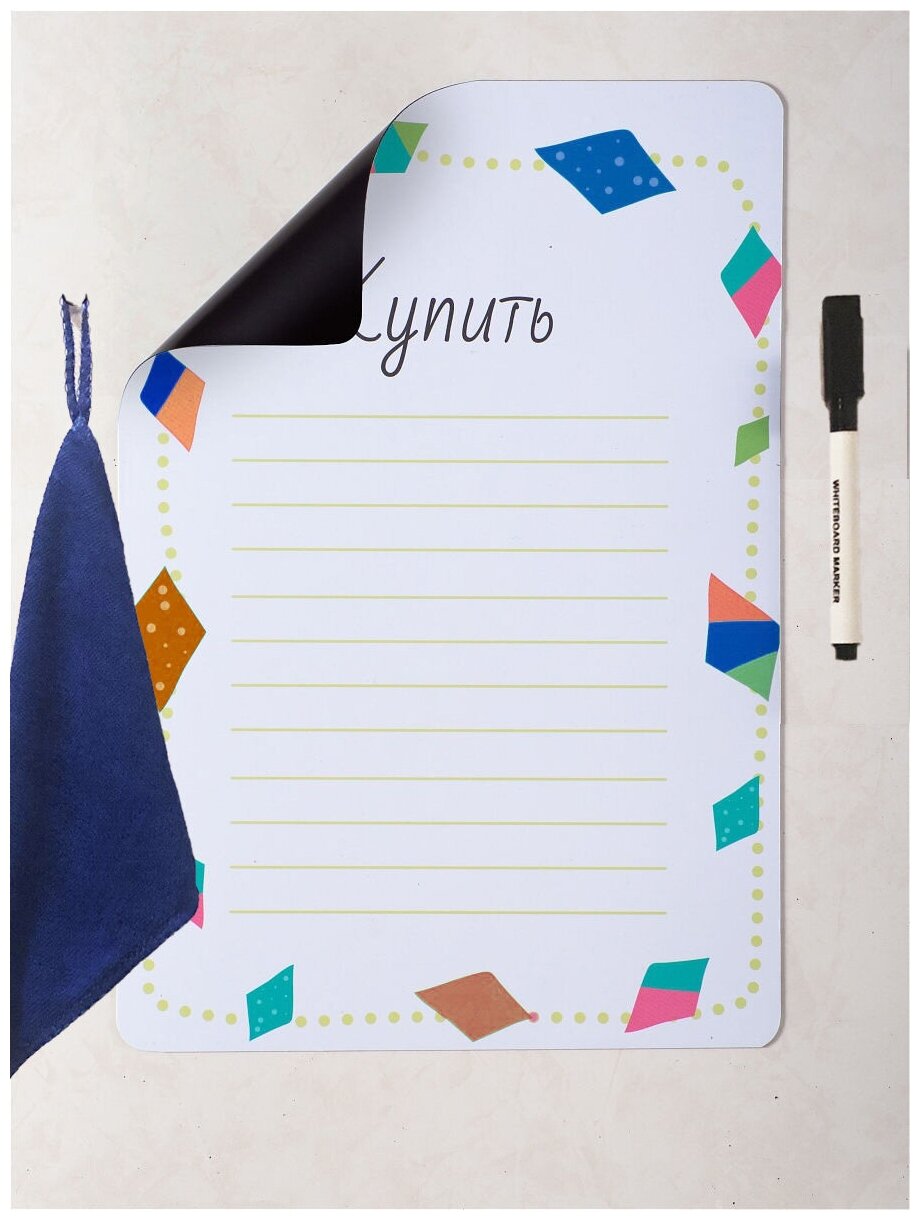 Купить
WHITEBOARD MARKER